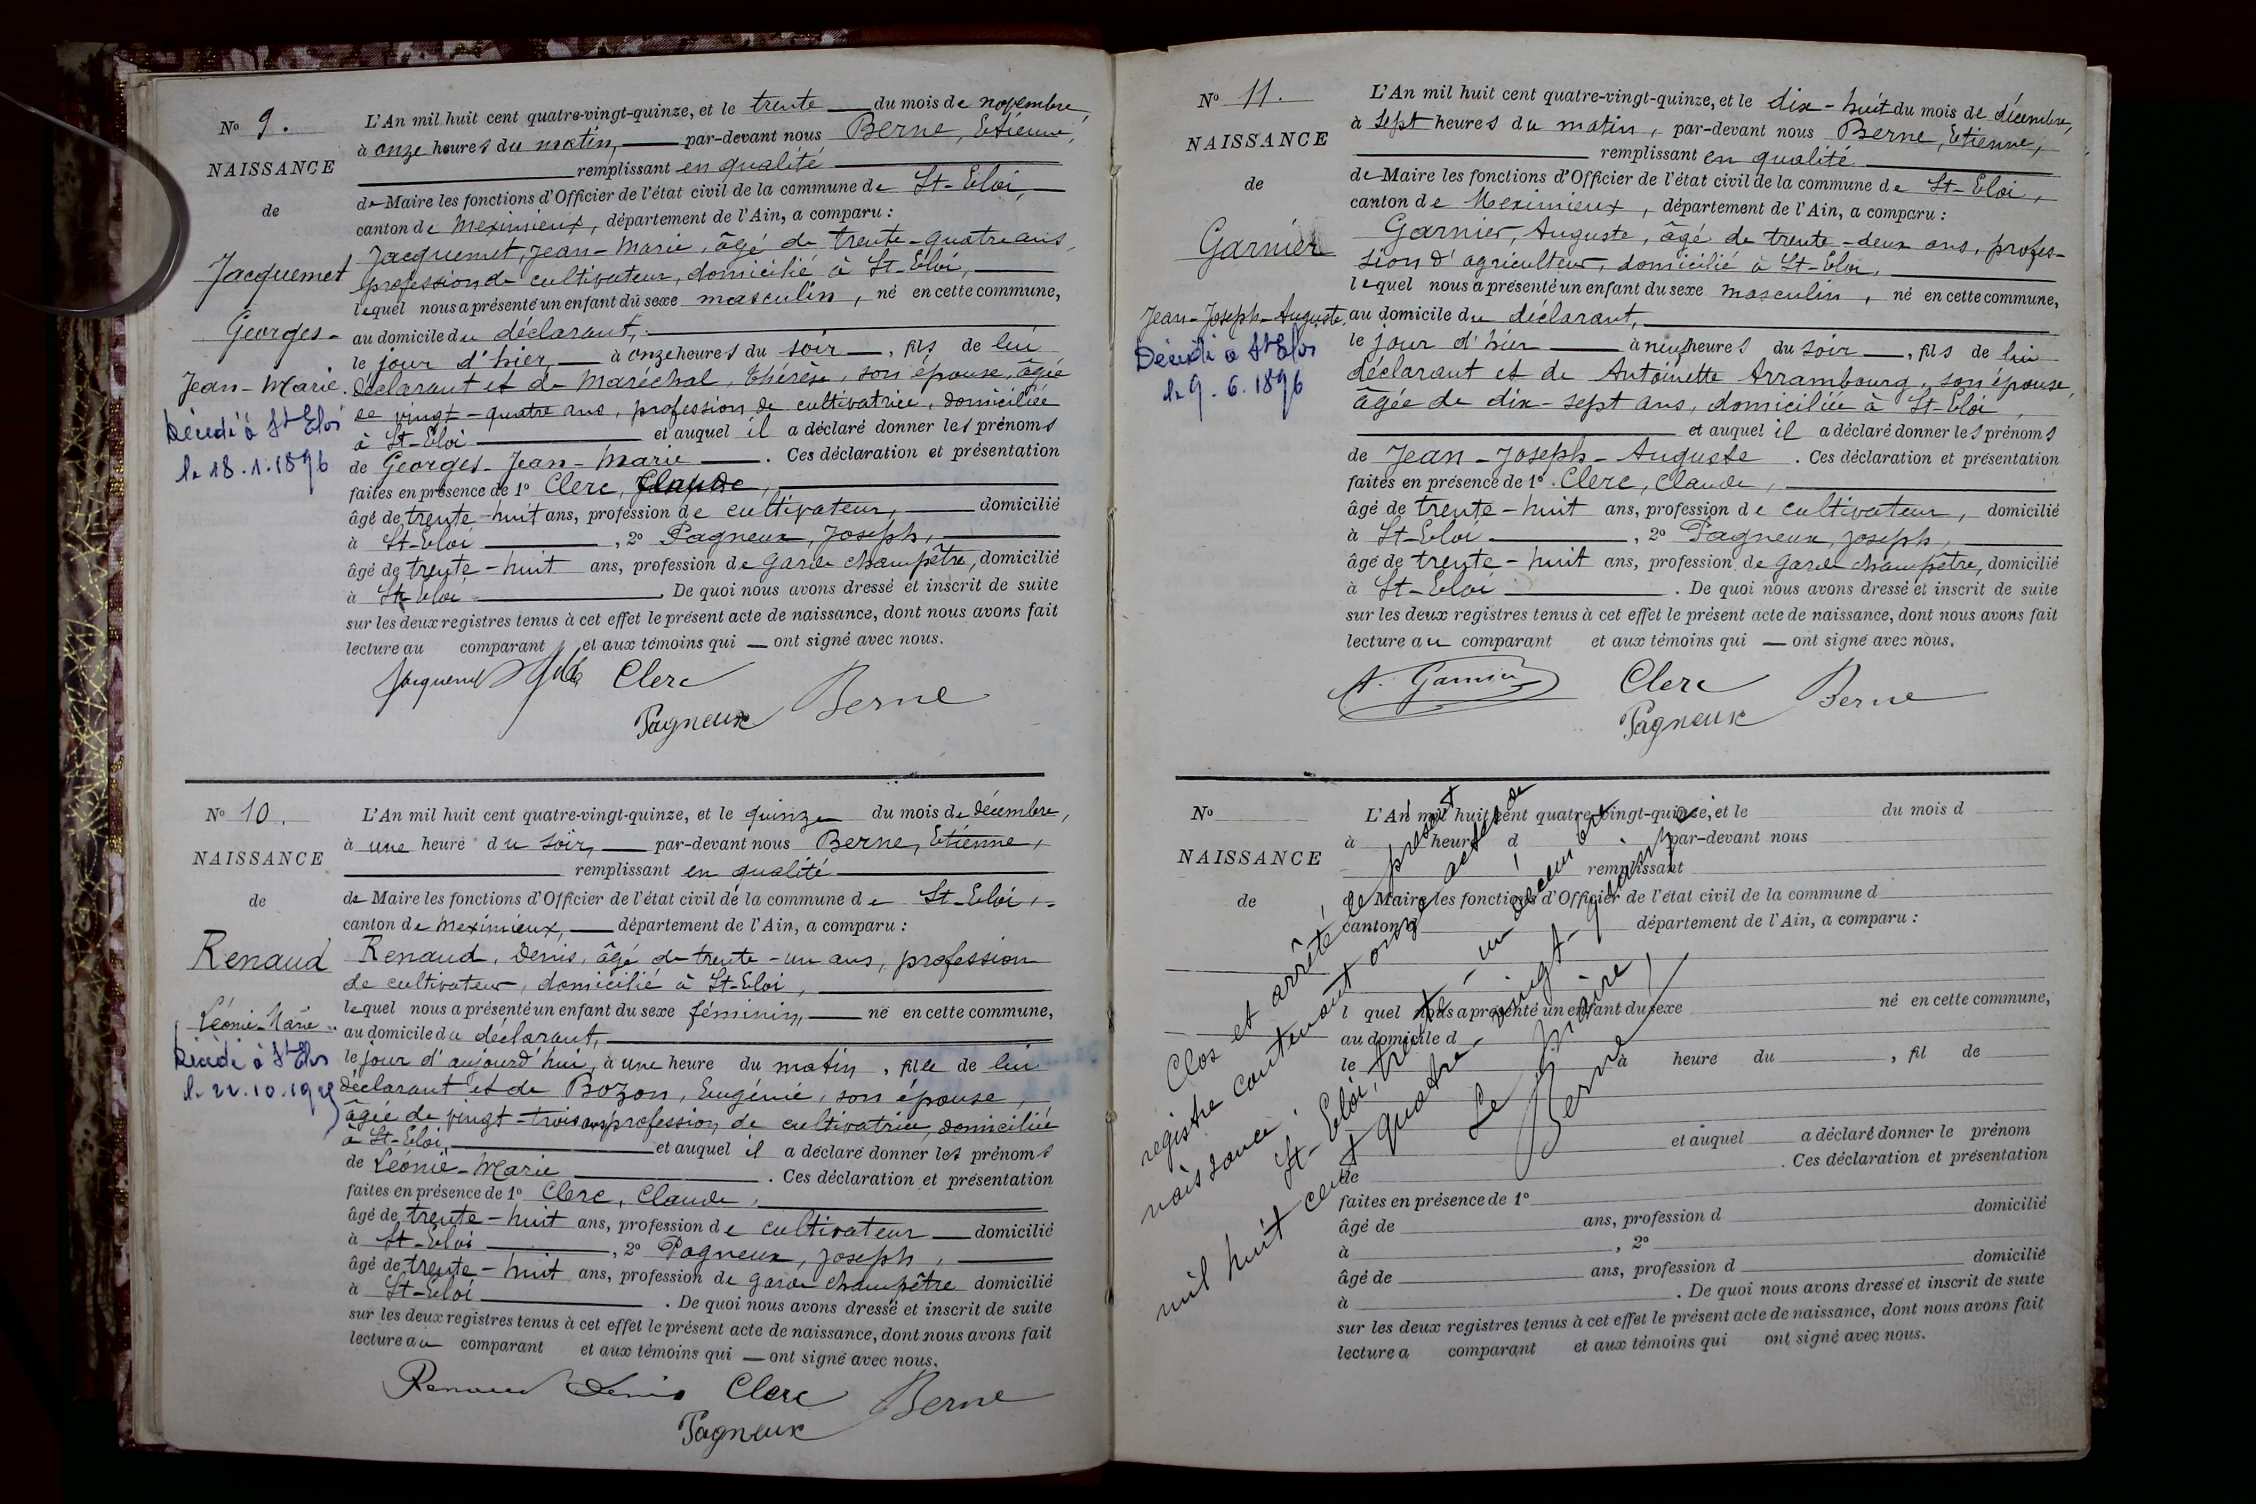 No 9.
NAISSANCE
de
Jacquemet
Georges-
Jean-Marie.
Décédé à St Eloi
le 18.1.1896
L'An mil huit cent quatre-vingt-quinze, et le trente du mois de novembre,
à onze heures du matin, par-devant nous Berne, Etienne,
remplissant en qualité
de Maire les fonctions d'Officier de l'état civil de la commune de St-Eloi,
canton de Meximieux, département de l'Ain, a comparu :
Jacquemet, Jean-Marie, âgé de trente-quatre ans,
profession de cultivateur, domicilié à St-Eloi,
lequel nous a présenté un enfant du sexe masculin, né en cette commune,
au domicile du déclarant,
le jour d'hier, à onze heures du soir, fils de lui
déclarant et de Maréchal, Thérèse, son épouse, âgée
de vingt-quatre ans, profession de cultivatrice, domiciliée
à St-Eloi et auquel il a déclaré donner les prénoms
de Georges-Jean-Marie. Ces déclaration et présentation
faites en présence de 1° Clerc, Claude,
âgé de trente-huit ans, profession de cultivateur, domicilié
à St-Eloi, 2° Pagneux, Joseph,
âgé de trente-huit ans, profession de garde champêtre, domicilié
à St-Eloi. De quoi nous avons dressé et inscrit de suite
sur les deux registres tenus à cet effet le présent acte de naissance, dont nous avons fait
lecture au comparant et aux témoins qui — ont signé avec nous.
Jacquemet Clerc
Pagneux Berne
No 10.
NAISSANCE
de
Renaud
Léonie-Marie
Décédé à St Eloi
le 22.10.19
L'An mil huit cent quatre-vingt-quinze, et le quinze du mois de décembre,
à une heure du soir, par-devant nous Berne, Etienne,
remplissant en qualité
de Maire les fonctions d'Officier de l'état civil de la commune de St-Eloi,
canton de Meximieux, département de l'Ain, a comparu :
Renaud, Denis, âgé de trente-un ans, profession
de cultivateur, domicilié à St-Eloi,
lequel nous a présenté un enfant du sexe féminin, né en cette commune,
au domicile du déclarant,
le jour d'aujourd'hui, à une heure du matin, fille de lui
déclarant et de Bozon, Eugénie, son épouse,
âgée de vingt-trois ans, profession de cultivatrice, domiciliée
à St-Eloi, et auquel il a déclaré donner les prénoms
de Léonie-Marie. Ces déclaration et présentation
faites en présence de 1° Clerc, Claude,
âgé de trente-huit ans, profession de cultivateur domicilié
à St-Eloi, 2° Pagneux, Joseph,
âgé de trente-huit ans, profession de garde champêtre domicilié
à St-Eloi. De quoi nous avons dressé et inscrit de suite
sur les deux registres tenus à cet effet le présent acte de naissance, dont nous avons fait
lecture au comparant et aux témoins qui — ont signé avec nous.
Renaud Denis Clerc
Pagneux Berne
No 11.
NAISSANCE
de
Garnier
Jean-Joseph-Auguste.
Décédé à St Eloi
le 9.6.1896
L'An mil huit cent quatre-vingt-quinze, et le dix-huit du mois de décembre,
à sept heures du matin, par-devant nous Berne, Etienne,
remplissant en qualité
de Maire les fonctions d'Officier de l'état civil de la commune de St-Eloi,
canton de Meximieux, département de l'Ain, a comparu :
Garnier, Auguste, âgé de trente-deux ans, profes-
sion d'agriculteur, domicilié à St-Eloi,
lequel nous a présenté un enfant du sexe masculin, né en cette commune,
au domicile du déclarant,
le jour d'hier à neuf heures du soir, fils de lui
déclarant et de Antoinette Arrambourg, son épouse,
âgée de dix-sept ans, domiciliée à St-Eloi,
et auquel il a déclaré donner les prénoms
de Jean-Joseph-Auguste. Ces déclaration et présentation
faites en présence de 1° Clerc, Claude,
âgé de trente-huit ans, profession de cultivateur, domicilié
à St-Eloi, 2° Pagneux, Joseph,
âgé de trente-huit ans, profession de garde champêtre, domicilié
à St-Eloi. De quoi nous avons dressé et inscrit de suite
sur les deux registres tenus à cet effet le présent acte de naissance, dont nous avons fait
lecture au comparant et aux témoins qui — ont signé avec nous.
A. Garnier Clerc
Pagneux Berne
No
NAISSANCE
de
L'An mil huit cent quatre-vingt-quinze, et le du mois d
à heure d par-devant nous
remplissant
de Maire les fonctions d'Officier de l'état civil de la commune d
canton d département de l'Ain, a comparu :
l quel nous a présenté un enfant du sexe né en cette commune,
au domicile d
le à heure du , fil de
et auquel a déclaré donner le prénom
de . Ces déclaration et présentation
faites en présence de 1°
âgé de ans, profession d domicilié
à , 2°
âgé de ans, profession d domicilié
à . De quoi nous avons dressé et inscrit de suite
sur les deux registres tenus à cet effet le présent acte de naissance, dont nous avons fait
lecture a comparant et aux témoins qui ont signé avec nous.
Clos et arrêté le présent
registre contenant onze actes de
naissance.
St-Eloi, trente-un décembre
mil huit cent quatre-vingt-quinze
Le Maire,
Berne